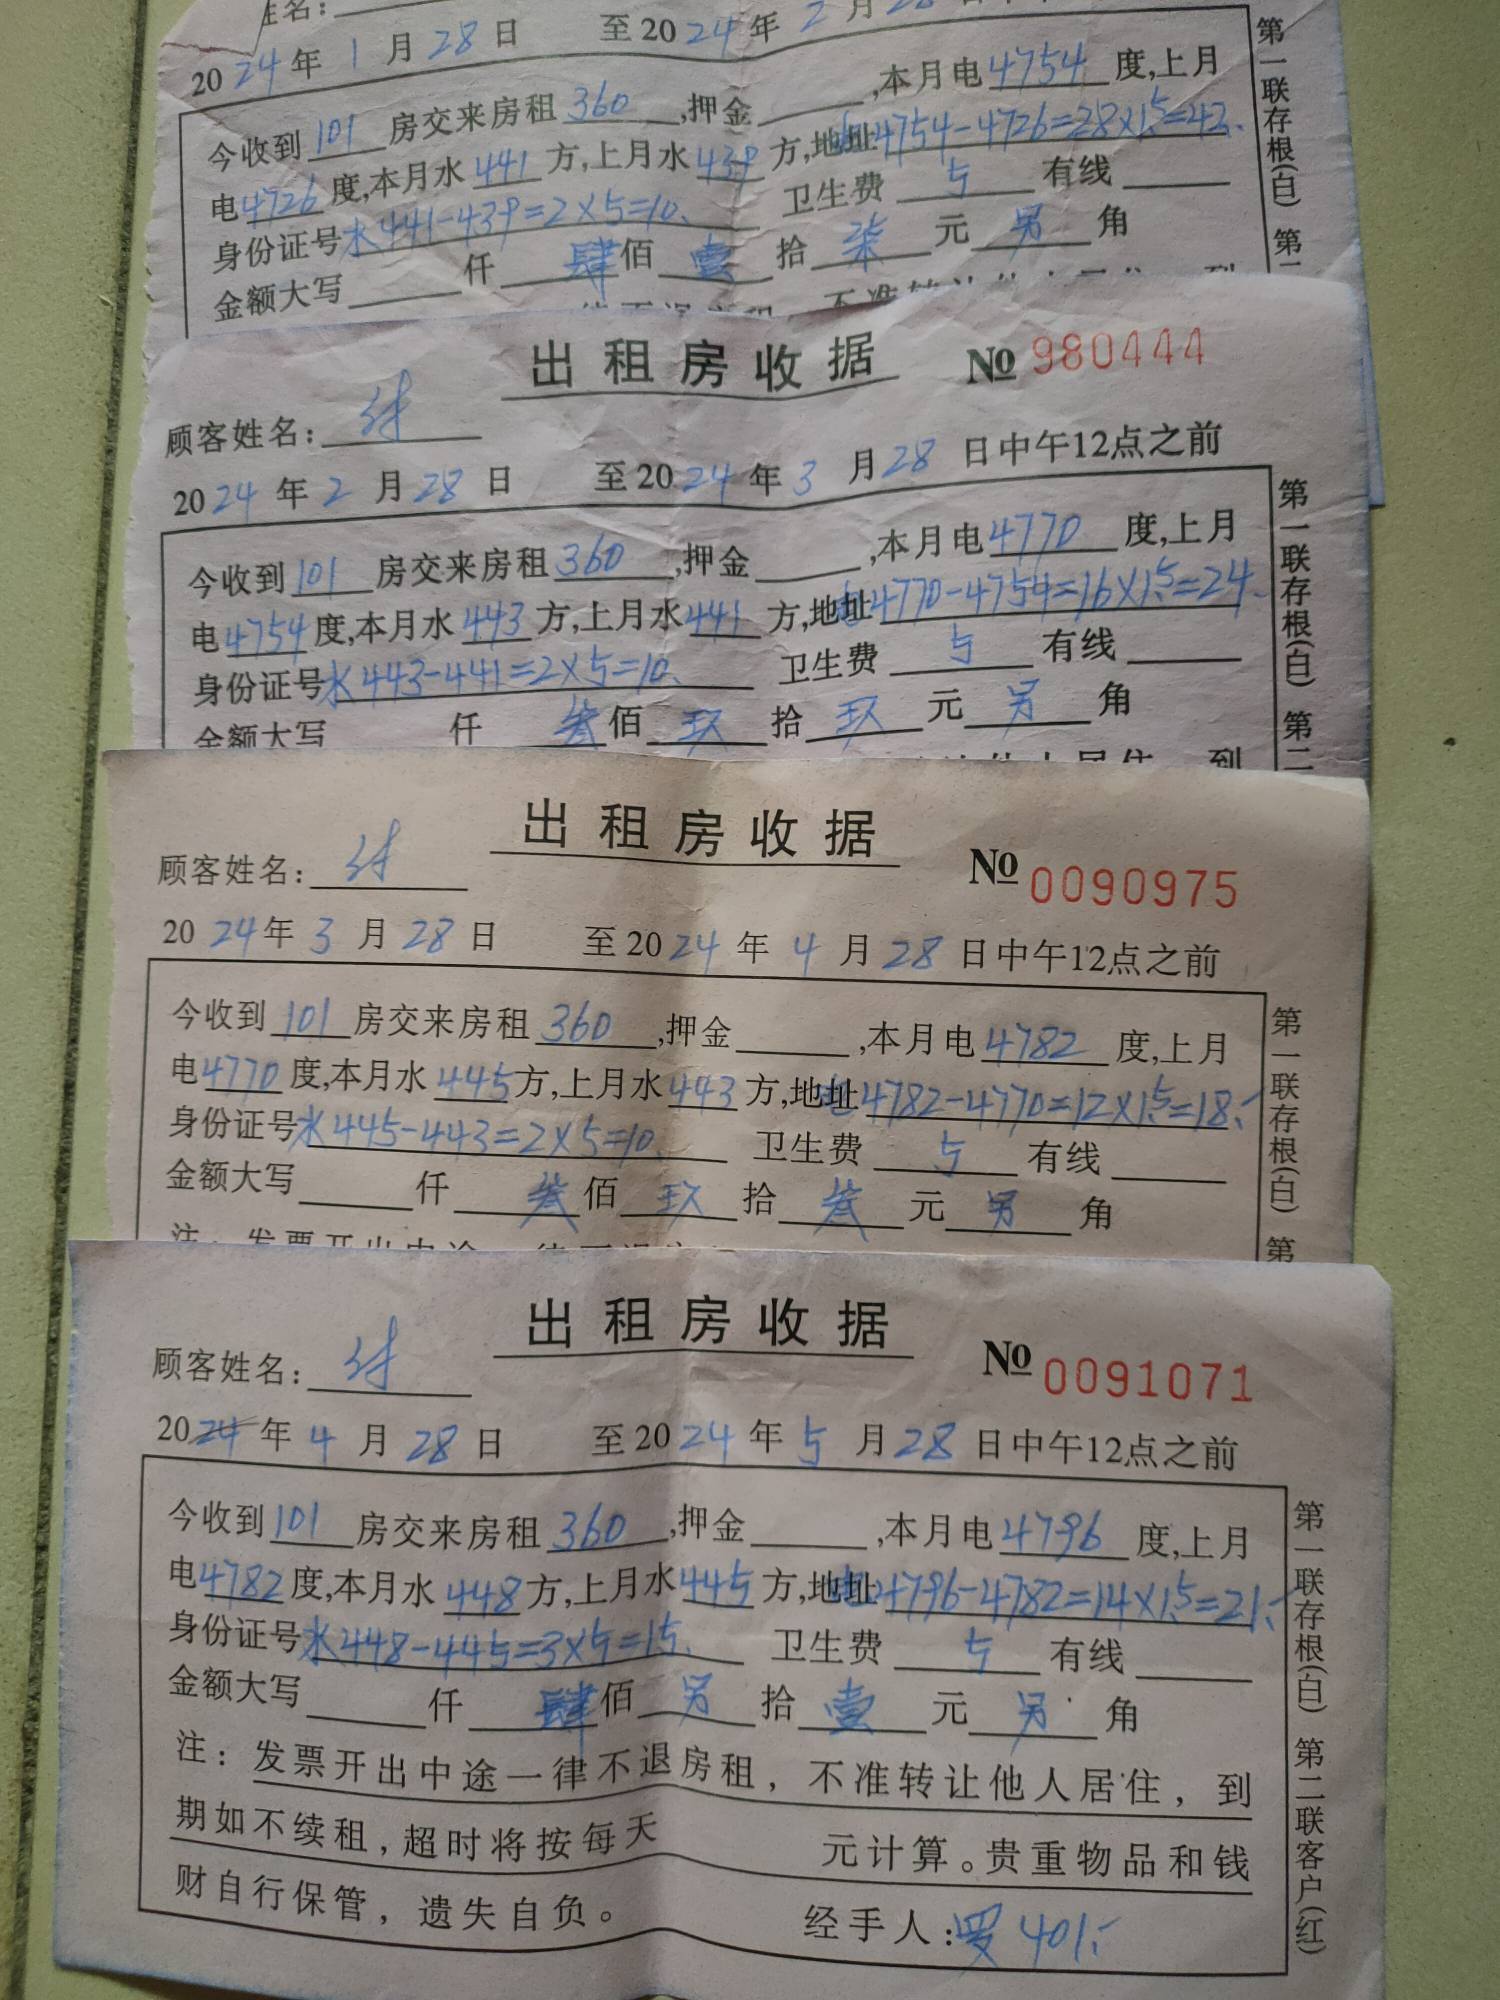 姓名：
2024年1月28日 至2024年2月28日中午
今收到101房交来房租360,押金 ,本月电4754度,上月
电4726度,本月水441方,上月水439方,地址电4754-4726=28×1.5=42.
身份证号水441-439=2×5=10. 卫生费5有线
金额大写 仟肆佰壹拾柒元另角
第一联存根(白) 第二
出租房收据 No 980444
顾客姓名：
2024年2月28日 至2024年3月28日中午12点之前
今收到101房交来房租360,押金 ,本月电4770度,上月
电4754度,本月水443方,上月水441方,地址电4770-4754=16×1.5=24.
身份证号水443-441=2×5=10. 卫生费5有线
金额大写 仟叁佰玖拾玖元另角
第一联存根(白) 第二
出租房收据 No 0090975
顾客姓名：
2024年3月28日 至2024年4月28日中午12点之前
今收到101房交来房租360,押金 ,本月电4782度,上月
电4770度,本月水445方,上月水443方,地址电4782-4770=12×1.5=18.-
身份证号水445-443=2×5=10. 卫生费5有线
金额大写 仟叁佰玖拾叁元另角
第一联存根(白) 第
出租房收据 No 0091071
顾客姓名：
2024年4月28日 至2024年5月28日中午12点之前
今收到101房交来房租360,押金 ,本月电4796度,上月
电4782度,本月水448方,上月水445方,地址电4796-4782=14×1.5=21.-
身份证号水448-445=3×5=15. 卫生费5有线
金额大写 仟肆佰另拾壹元另角
注：发票开出中途一律不退房租，不准转让他人居住，到
期如不续租，超时将按每天 元计算。贵重物品和钱
财自行保管，遗失自负。 经手人:罗 401.-
第一联存根(白) 第二联客户(红)